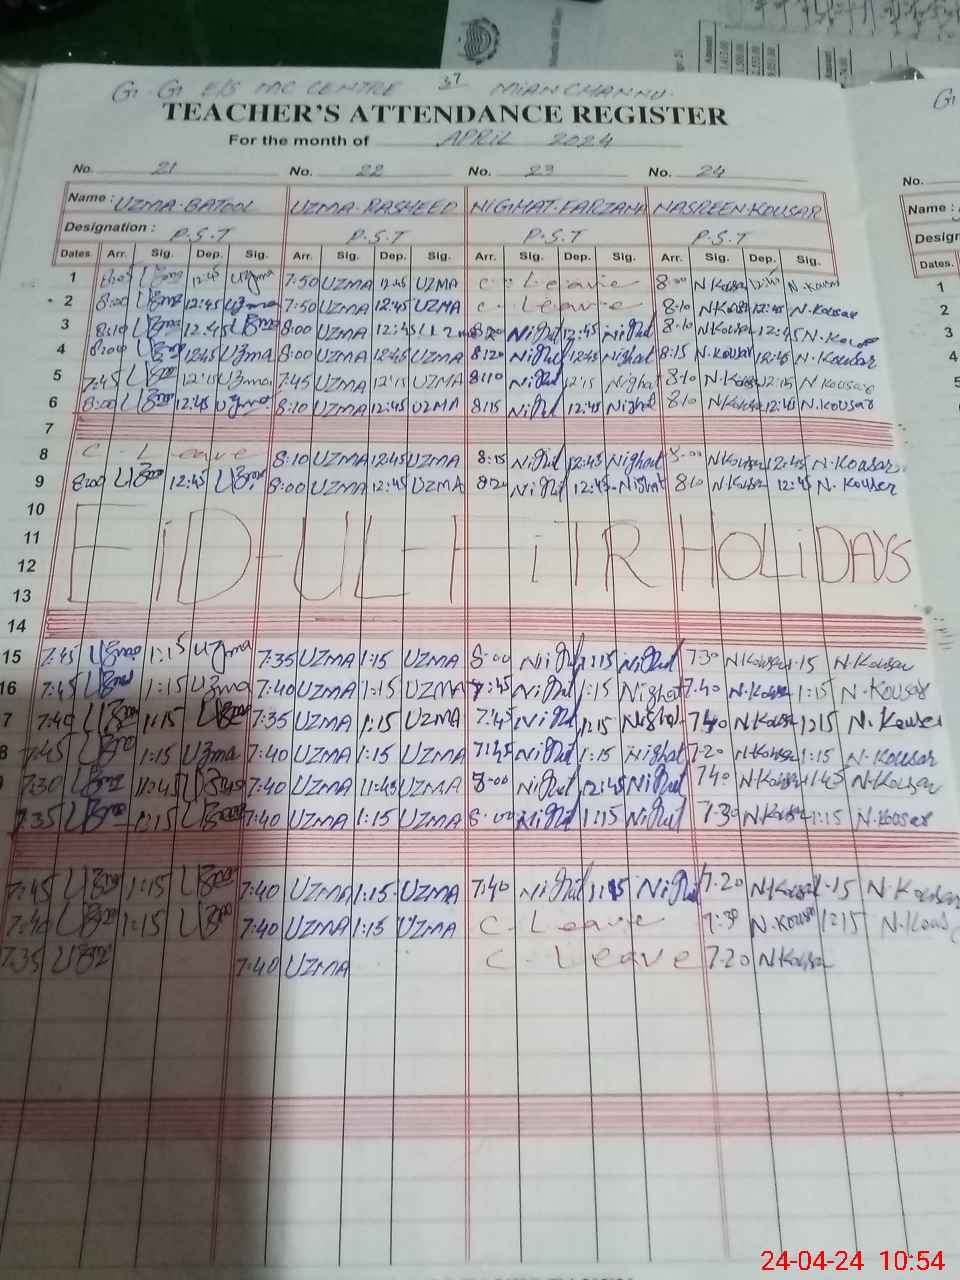 G. G. E/S MC CENTRE 37 MIAN CHANNU.
TEACHER'S ATTENDANCE REGISTER
For the month of APRIL 2024
No. 21 No. 22 No. 23 No. 24 No.
Name : UZMA-BATOOL UZMA-RASHEED NIGHAT-FARZANA NASREEN-KOUSAR Name :
Designation : P.S.T P.S.T P.S.T P.S.T
Dates Arr. Sig. Dep. Sig. Arr. Sig. Dep. Sig. Arr. Sig. Dep. Sig. Arr. Sig. Dep. Sig. Dates
1 Uzma 12:45 Uzma 7:50 UZMA 12:45 UZMA C-Leave 8:00 N.Kousar 12:45 N.Kousar 1
2 8:00 Uzma 12:45 Uzma 7:50 UZMA 12:45 UZMA C-Leave 8:10 N.Kousar 12:45 N.Kousar 2
3 8:10 Uzma 12:45 Uzma 8:00 UZMA 12:45 8:20 Nighat 12:45 Nighat 8:10 N.Kousar 12:45 N.Kousar 3
4 8:00 Uzma 12:45 Uzma 8:00 UZMA 12:45 UZMA 8:20 Nighat 12:45 Nighat 8:15 N.Kousar 12:45 N.Kousar 4
5 7:45 Uzma 12:15 Uzma 7:45 UZMA 12:15 UZMA 8:10 Nighat 12:15 Nighat 8:10 N.Kousar 12:15 N.Kousar 5
6 8:00 Uzma 12:45 Uzma 8:10 UZMA 12:45 UZMA 8:15 Nighat 12:45 Nighat 8:10 N.Kousar 12:45 N.Kousar
7
8 C-Leave 8:10 UZMA 12:45 UZMA 8:15 Nighat 12:45 Nighat 8:00 N.Kousar 12:45 N.Kousar
9 8:00 Uzma 12:45 Uzma 8:00 UZMA 12:45 UZMA 8:20 Nighat 12:45 Nighat 8:10 N.Kousar 12:45 N.Kousar
10
11 EID-UL-FiTR HOLiDAYS
12
13
14
15 7:45 Uzma 1:15 Uzma 7:35 UZMA 1:15 UZMA 8:00 Nighat 1:15 Nighat 7:30 N.Kousar 1:15 N.Kousar
16 7:45 Uzma 1:15 Uzma 7:40 UZMA 1:15 UZMA 7:45 Nighat 1:15 Nighat 7:40 N.Kousar 1:15 N.Kousar
7 7:40 Uzma 1:15 Uzma 7:35 UZMA 1:15 UZMA 7:45 Nighat 1:15 Nighat 7:40 N.Kousar 1:15 N.Kousar
8 7:45 Uzma 1:15 Uzma 7:40 UZMA 1:15 UZMA 7:45 Nighat 1:15 Nighat 7:20 N.Kousar 1:15 N.Kousar
9 7:30 Uzma 11:45 Uzma 7:40 UZMA 11:45 UZMA 8:00 Nighat 12:45 Nighat 7:40 N.Kousar 11:45 N.Kousar
7:35 Uzma 1:15 Uzma 7:40 UZMA 1:15 UZMA 8:00 Nighat 1:15 Nighat 7:30 N.Kousar 1:15 N.Kousar
7:45 Uzma 1:15 Uzma 7:40 UZMA 1:15 UZMA 7:40 Nighat 1:15 Nighat 7:20 N.Kousar 1:15 N.Kousar
7:40 Uzma 1:15 Uzma 7:40 UZMA 1:15 UZMA C-Leave 7:30 N.Kousar 1:15 N.Kous
7:35 Uzma 7:40 UZMA C-Leave 7:20 N.Kousar
24-04-24 10:54